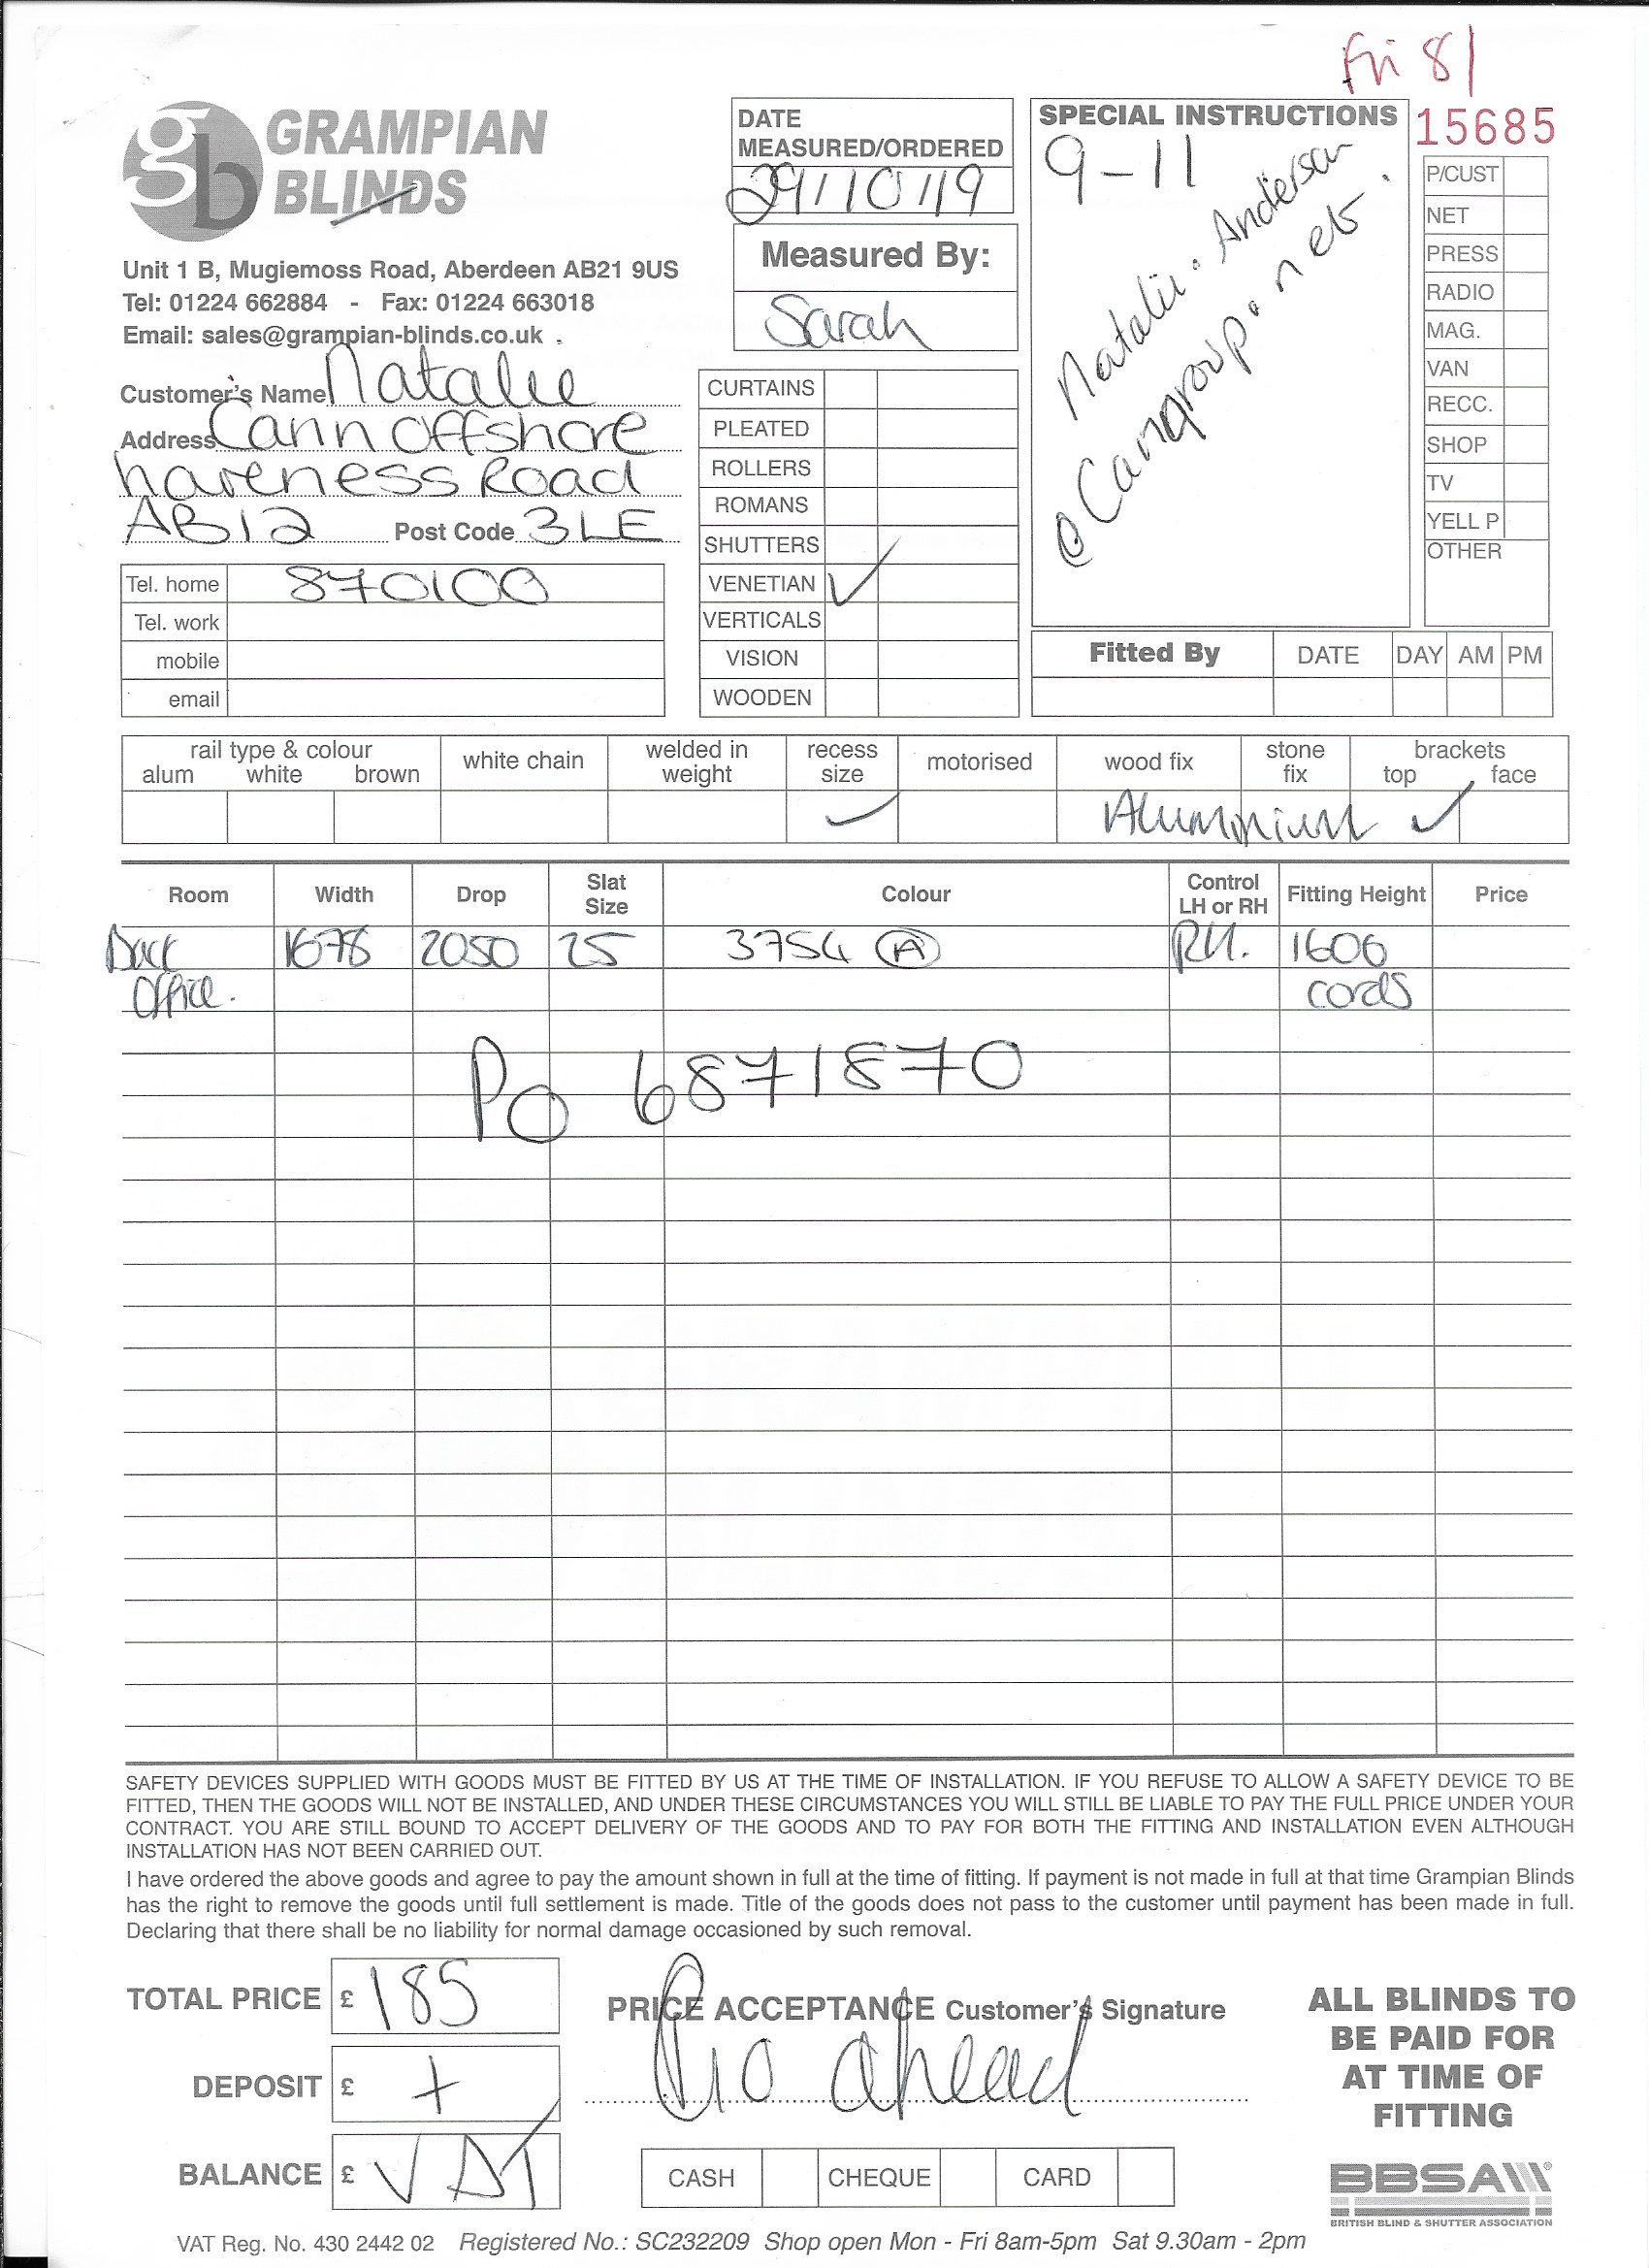 Fri 8/
15685
gb GRAMPIAN
BLINDS
Unit 1 B, Mugiemoss Road, Aberdeen AB21 9US
Tel: 01224 662884 - Fax: 01224 663018
Email: sales@grampian-blinds.co.uk
Customer's Name Natalie
Address Cann Offshore
hareness Road
AB12 Post Code 3LE
Tel. home 870100
Tel. work
mobile
email
DATE
MEASURED/ORDERED
29/10/19
Measured By:
Sarah
CURTAINS
PLEATED
ROLLERS
ROMANS
SHUTTERS
VENETIAN ✓
VERTICALS
VISION
WOODEN
SPECIAL INSTRUCTIONS
9-11
Natalie. Anderson
@ Canngroup. net
P/CUST
NET
PRESS
RADIO
MAG.
VAN
RECC.
SHOP
TV
YELL P
OTHER
Fitted By DATE DAY AM PM
rail type & colour white chain welded in weight recess size motorised wood fix stone fix brackets
alum white brown top face
✓ Aluminium ✓
Room Width Drop Slat Size Colour Control LH or RH Fitting Height Price
Back 1678 2050 25 3754 (A) RH. 1606
Office. cords
PO 6871870
SAFETY DEVICES SUPPLIED WITH GOODS MUST BE FITTED BY US AT THE TIME OF INSTALLATION. IF YOU REFUSE TO ALLOW A SAFETY DEVICE TO BE
FITTED, THEN THE GOODS WILL NOT BE INSTALLED, AND UNDER THESE CIRCUMSTANCES YOU WILL STILL BE LIABLE TO PAY THE FULL PRICE UNDER YOUR
CONTRACT. YOU ARE STILL BOUND TO ACCEPT DELIVERY OF THE GOODS AND TO PAY FOR BOTH THE FITTING AND INSTALLATION EVEN ALTHOUGH
INSTALLATION HAS NOT BEEN CARRIED OUT.
I have ordered the above goods and agree to pay the amount shown in full at the time of fitting. If payment is not made in full at that time Grampian Blinds
has the right to remove the goods until full settlement is made. Title of the goods does not pass to the customer until payment has been made in full.
Declaring that there shall be no liability for normal damage occasioned by such removal.
TOTAL PRICE £ 185
DEPOSIT £ +
BALANCE £ VAT
PRICE ACCEPTANCE Customer's Signature
ahead
CASH CHEQUE CARD
ALL BLINDS TO
BE PAID FOR
AT TIME OF
FITTING
BBSA
BRITISH BLIND & SHUTTER ASSOCIATION
VAT Reg. No. 430 2442 02 Registered No.: SC232209 Shop open Mon - Fri 8am-5pm Sat 9.30am - 2pm